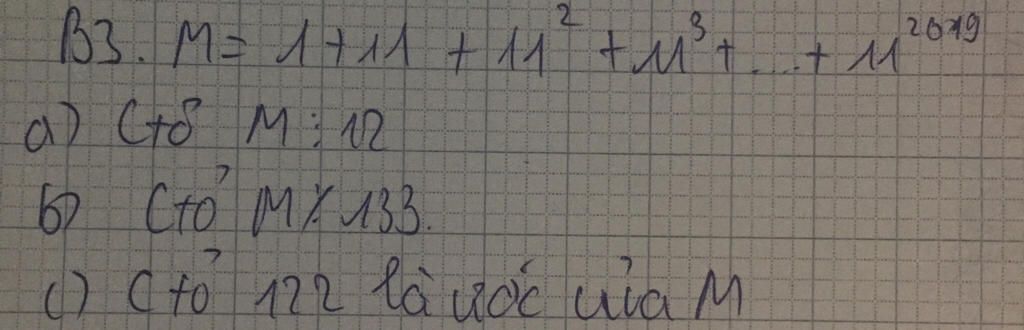 B3. M = 1 + 11 + 11² + 11³ + ... + 11²⁰¹⁹
a) Ctỏ M ⋮ 12
b) Ctỏ M ⋮̸ 133.
c) Ctỏ 122 là ước của M